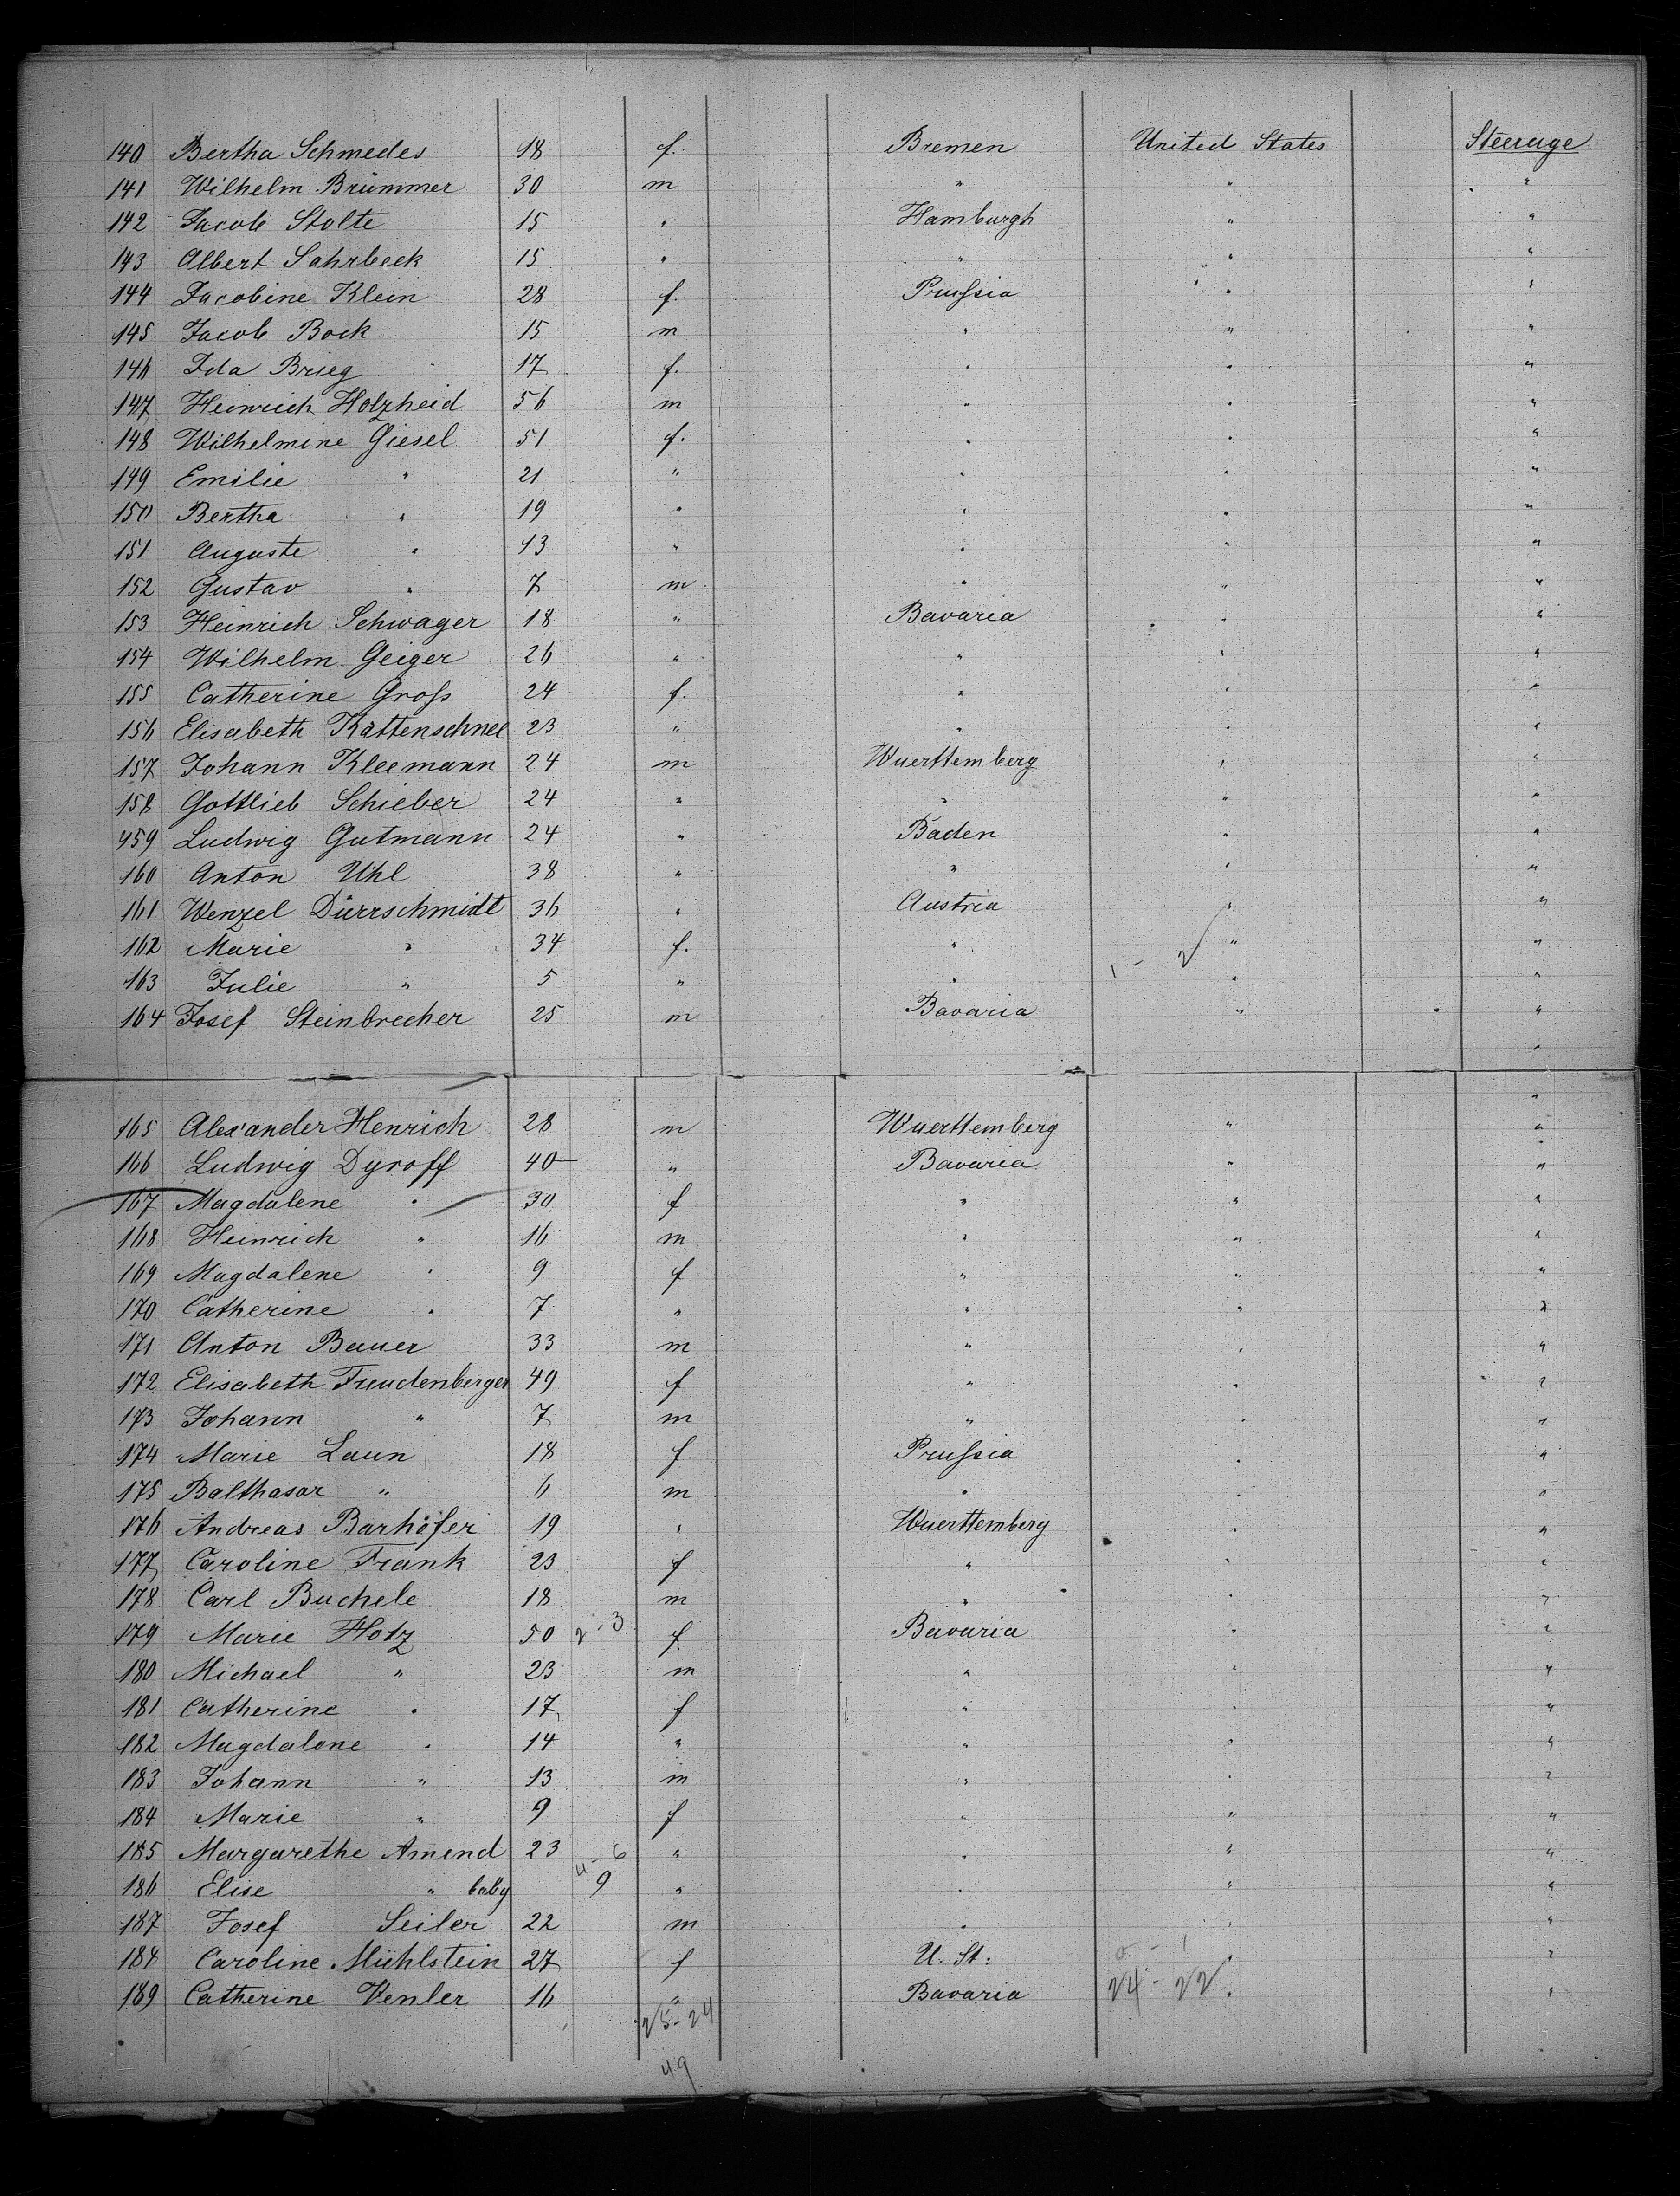 140 Bertha Schmedes 18 f. Bremen United States Steerage
141 Wilhelm Brümmer 30 m " " "
142 Jacob Stolte 15 " Hamburgh " "
143 Albert Sahrbeck 15 " " " "
144 Jacobine Klein 28 f. Prussia " "
145 Jacob Bock 15 m " " "
146 Ida Brieg 17 f. " " "
147 Heinrich Holzheid 56 m " " "
148 Wilhelmine Giesel 51 f. " " "
149 Emilie " 21 " " " "
150 Bertha " 19 " " " "
151 Auguste " 13 " " " "
152 Gustav " 7 m " " "
153 Heinrich Schwager 18 " Bavaria " "
154 Wilhelm Geiger 26 " " " "
155 Catherine Gross 24 f. " " "
156 Elisabeth Kattenschnee 23 " " " "
157 Johann Kleemann 24 m Wuerttemberg " "
158 Gottlieb Schieber 24 " " " "
159 Ludwig Gutmann 24 " Baden " "
160 Anton Uhl 38 " " " "
161 Wenzel Dürrschmidt 36 " Austria " "
162 Marie " 34 f. " 1 - 2 " "
163 Julie " 5 " " " "
164 Josef Steinbrecher 25 m Bavaria " "
"
"
165 Alexander Henrich 28 m Wuerttemberg " "
166 Ludwig Dyroff 40 " Bavaria " "
167 Magdalene " 30 f " " "
168 Heinrich " 16 m " " "
169 Magdalene " 9 f " " "
170 Catherine " 7 " " " "
171 Anton Bauer 33 m " " "
172 Elisabeth Freudenberger 49 f " " "
173 Johann " 7 m " " "
174 Marie Laun 18 f. Prussia " "
175 Balthasar " 6 m " " "
176 Andreas Barhöfer 19 " Wuerttemberg " "
177 Caroline Frank 23 f " " "
178 Carl Buchele 18 m " " "
179 Marie Hotz 50 2-3 f Bavaria " "
180 Michael " 23 m " " "
181 Catherine " 17 f " " "
182 Magdalene " 14 " " " "
183 Johann " 13 m " " "
184 Marie " 9 f " " "
185 Margarethe Amend 23 4-6 " " " "
186 Elise " baby 9 " " " "
187 Josef Seiler 22 m " " "
188 Caroline Mühlstein 27 f U. St: 0 - 1 " "
189 Catherine Venler 16 " Bavaria 24 - 22 " "
25-24
49